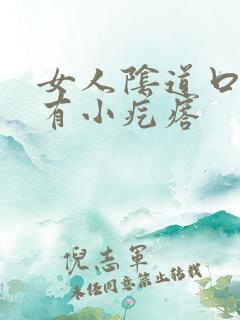 女人陰道口
有小疙瘩
倪志軍
未經同意禁止轉載